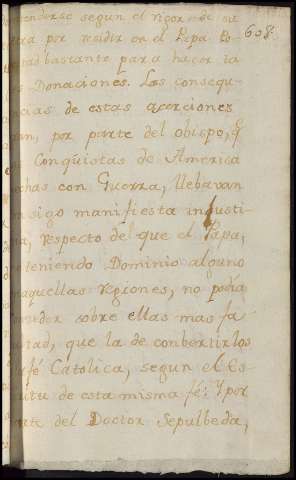 enderse segun el rigor de su
tra por residir en el Papa Po-
608.
estad bastante para hacer la
s Donaciones. Las consequ-
ncias de estas aserciones
ran, por parte del obispo, q
Conquistas de America
echas con Guerra, llebavan
nsigo manifiesta injusti-
ia, respecto del que el Papa,
o teniendo Dominio alguno
n aquellas regiones, no podia
onceder sobre ellas mas fa
ltad, que la de conbertirlos
fé Catolica, segun el Es-
tuta de esta misma fe: Y por
arte del Doctor Sepulbeda,